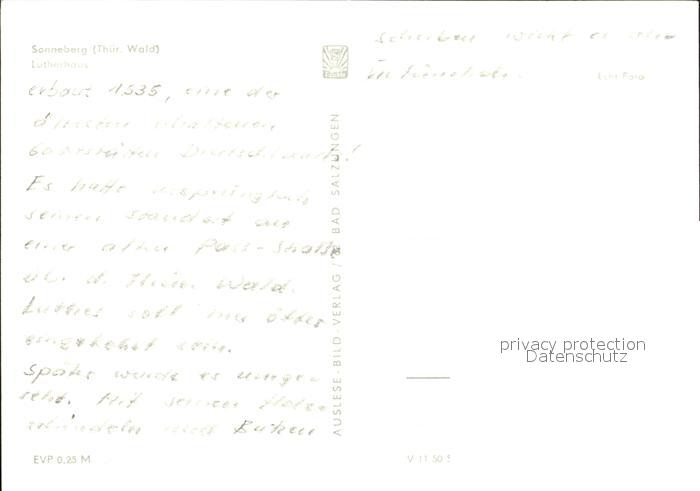 Sonneberg (Thür. Wald)
Lutherhaus
erbaut 1535, eine der
ältesten erhaltenen
Gaststätten Deutschlands!
Es hatte ursprünglich
seinen Standort an
einer alten Pass-Straße
üb. d. Thür. Wald.
Luther soll hier öfter
eingekehrt sein.
Später wurde es umge-
setzt. Mit seinen Holz-
und Butzen
scheiben wirkt es
EVP 0,25 M
AUSLESE-BILD-VERLAG / BAD SALZUNGEN
Echt Foto
privacy protection
Datenschutz
V 11 50